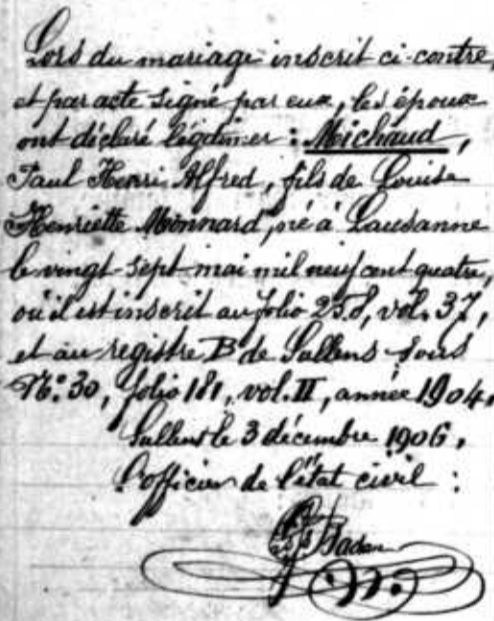 Lors du mariage inscrit ci-contre,
et par acte signé par eux, les époux
ont déclaré légitimer : Michaud,
Paul Henri Alfred, fils de Louise
Henriette Monnard, né à Lausanne
le vingt-sept mai mil neuf cent quatre,
où il est inscrit au folio 258, vol. 37,
et au registre B de Sullens sous
No. 30, folio 181, vol. II, année 1904.
Sullens le 3 décembre 1906.
L'officier de l'état civil :
Badan